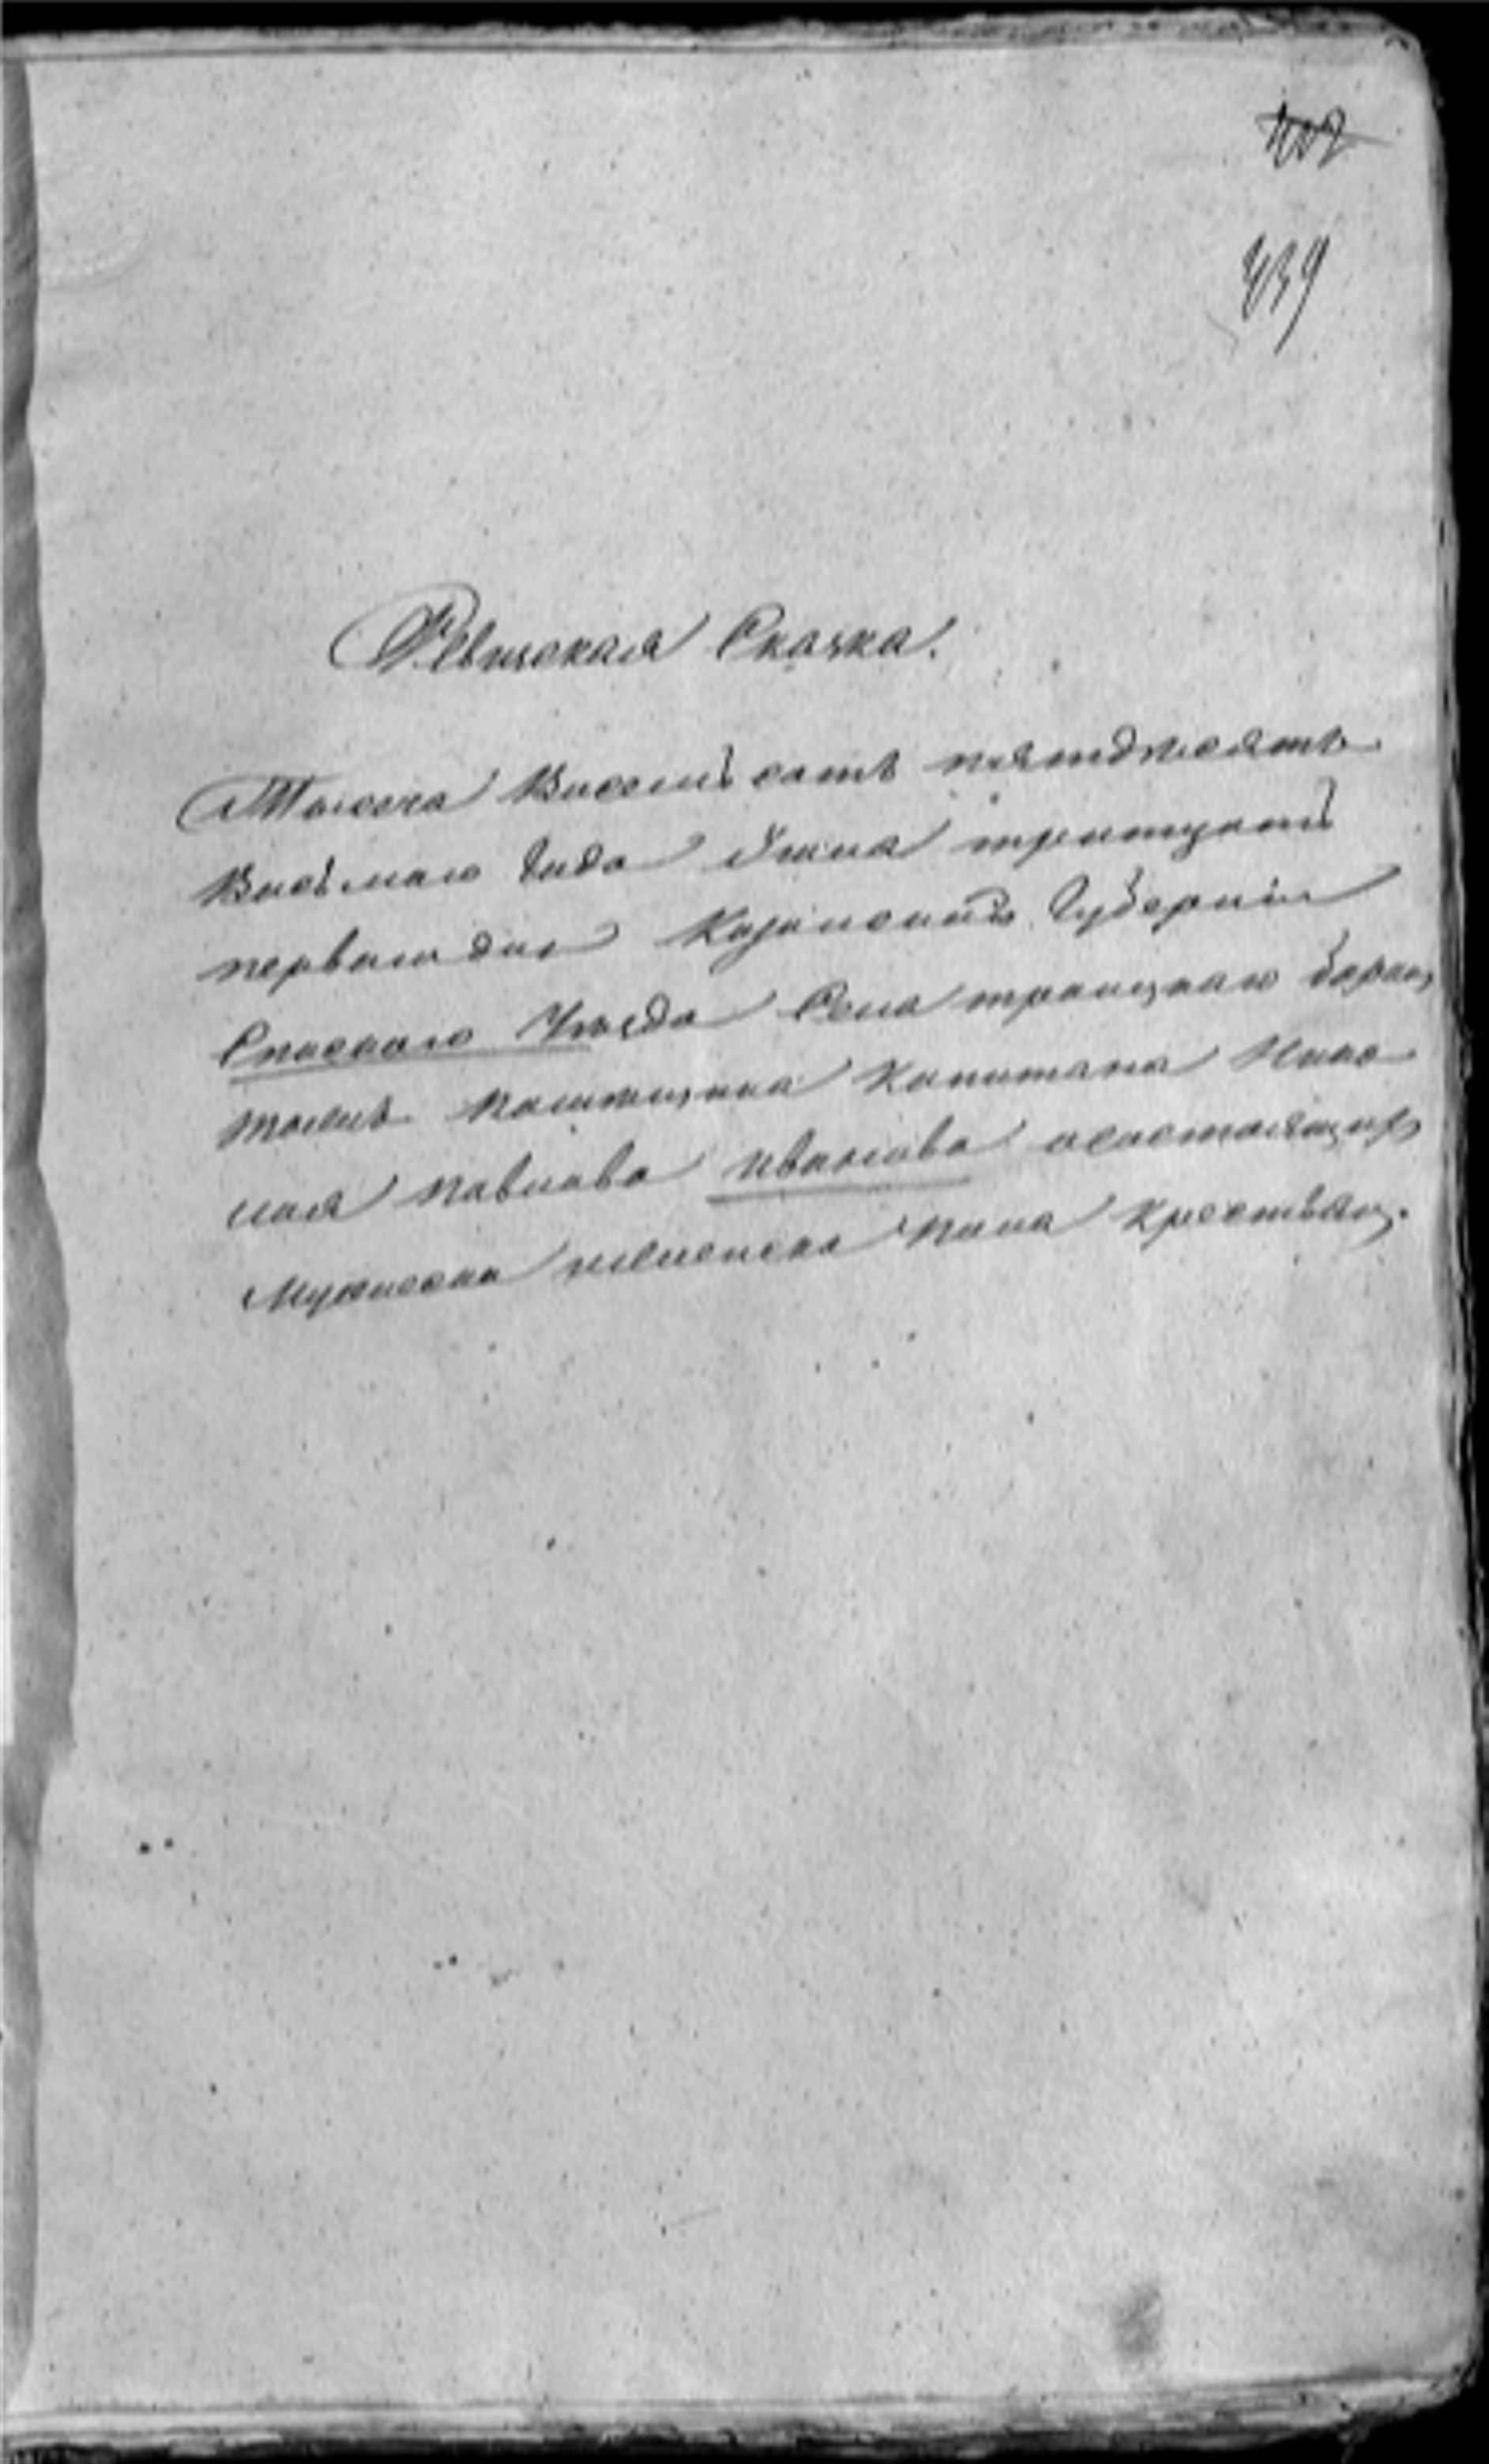 439
Ревизская Сказка.
Тысяча Восемь сотъ пятдѣсятъ
Восьмаго Года Юнна тритцать
перваго дня Казанской Губернiи
Спаскаго Уѣзда Села троицкаго баран
тоже Помѣщика Капитана Нико
лая Павлова Иванова о состоящихъ
Мужеска и женска Пола Крестьян.